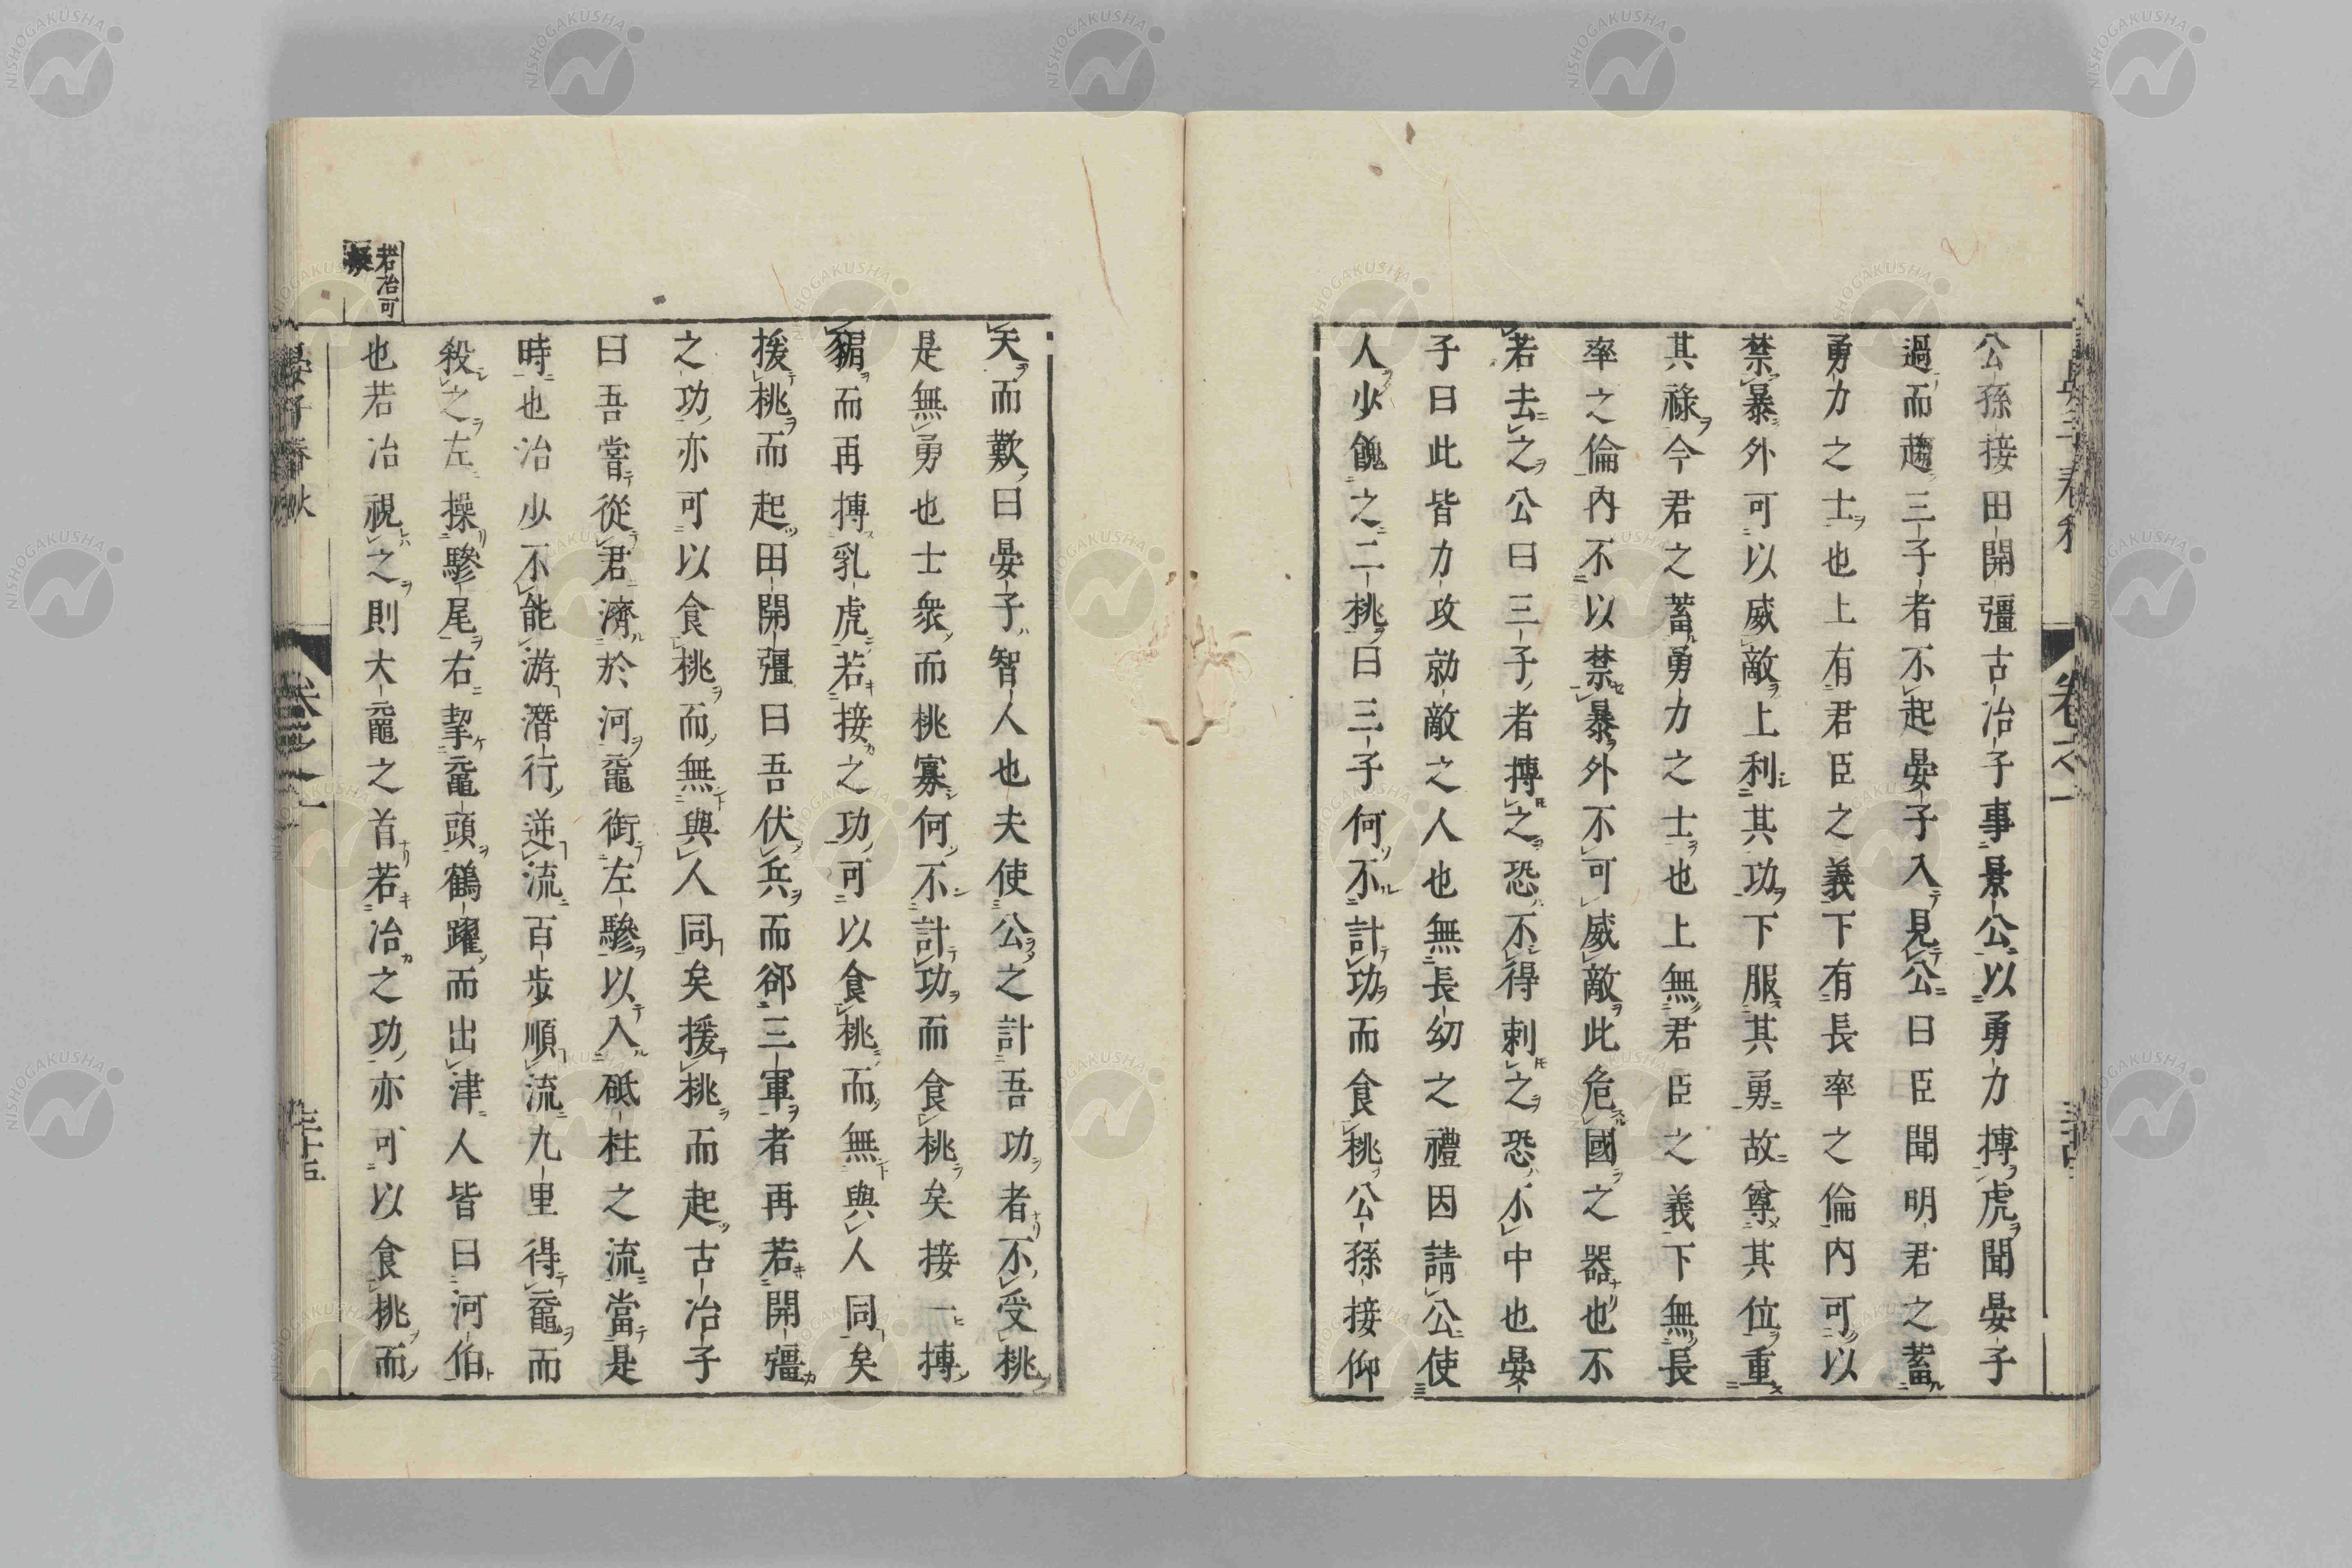 公孫接田開彊古冶子事景公以勇力搏虎聞晏子
過而趨三子者不起晏子入見公曰臣聞明君之蓄
勇力之士也上有君臣之義下有長率之倫内可以
禁暴外可以威敵上利其功下服其勇故尊其位重
其祿今君之蓄勇力之士也上無君臣之義下無長
率之倫内不以禁暴外不可威敵此危國之器也不
若去之公曰三子者搏之恐不得刺之恐不中也晏
子曰此皆力攻勍敵之人也無長幼之禮因請公使
人少餽之二桃曰三子何不計功而食桃公孫接仰
天而歎曰晏子智人也夫使公之計吾功者不受桃
是無勇也士衆而桃寡何不計功而食桃矣接一搏
猏而再搏乳虎若接之功可以食桃而無與人同矣
援桃而起田開彊曰吾伏兵而郤三軍者再若開彊
之功亦可以食桃而無與人同矣援桃而起古冶子
曰吾嘗從君濟於河黿銜左驂以入砥柱之流當是
時也冶少不能游潛行逆流百步順流九里得黿而
殺之左操驂尾右挈黿頭鶴躍而出津人皆曰河伯
也若冶視之則大黿之首若冶之功亦可以食桃而
若冶可
晏子春秋
卷之一
三十五
NISHOGAKUSHA